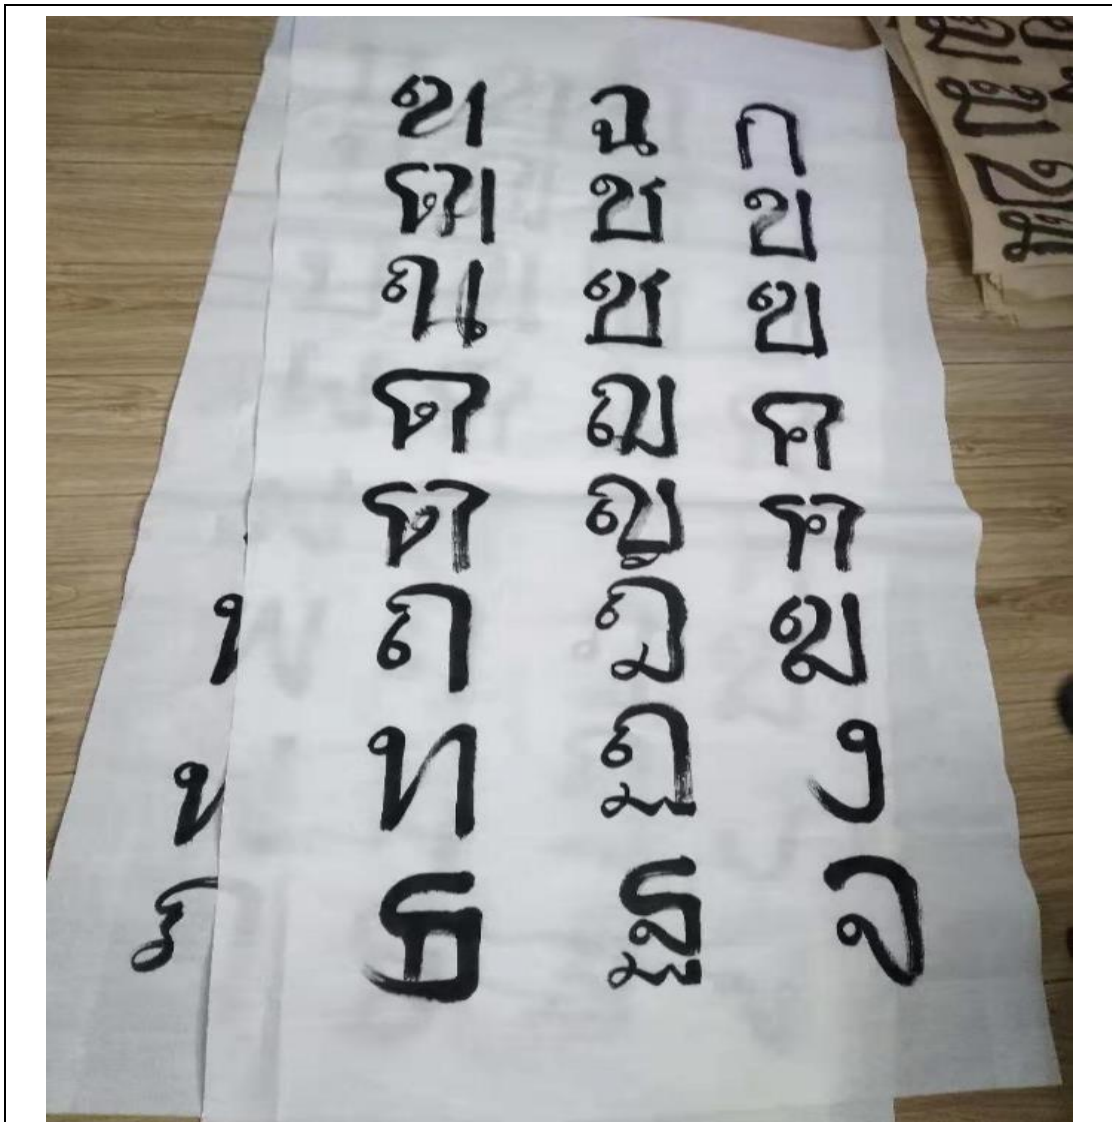 กขฃคฅฆงจ
ฉชซฌญฎฏฐ
ฑฒณดตถทธ